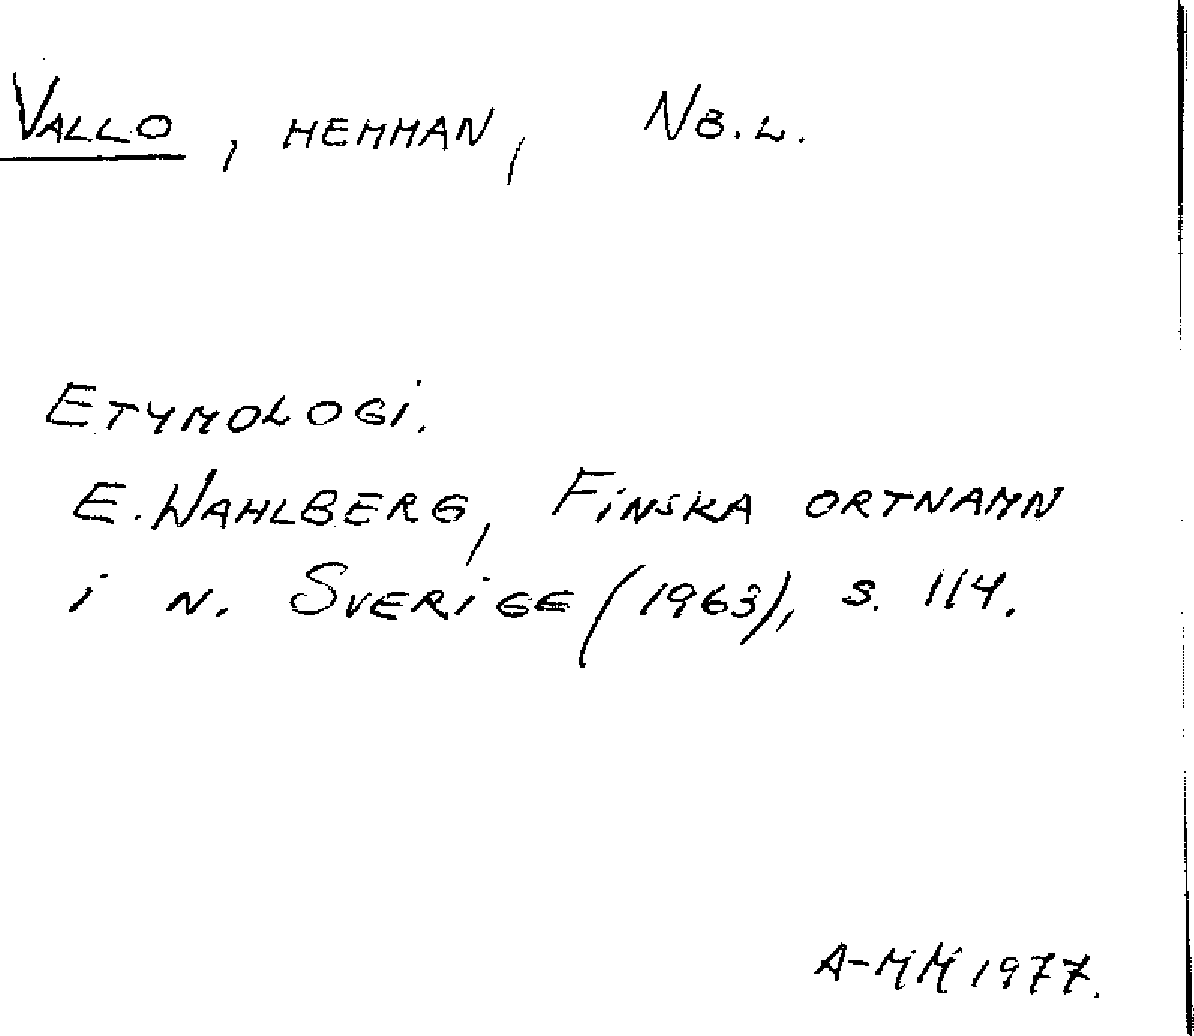 VALLO, HEMMAN, NB.L.
ETYMOLOGI.
E. WAHLBERG, FINSKA ORTNAMN
i N. SVERIGE (1963), S. 114.
A-MM 1977.